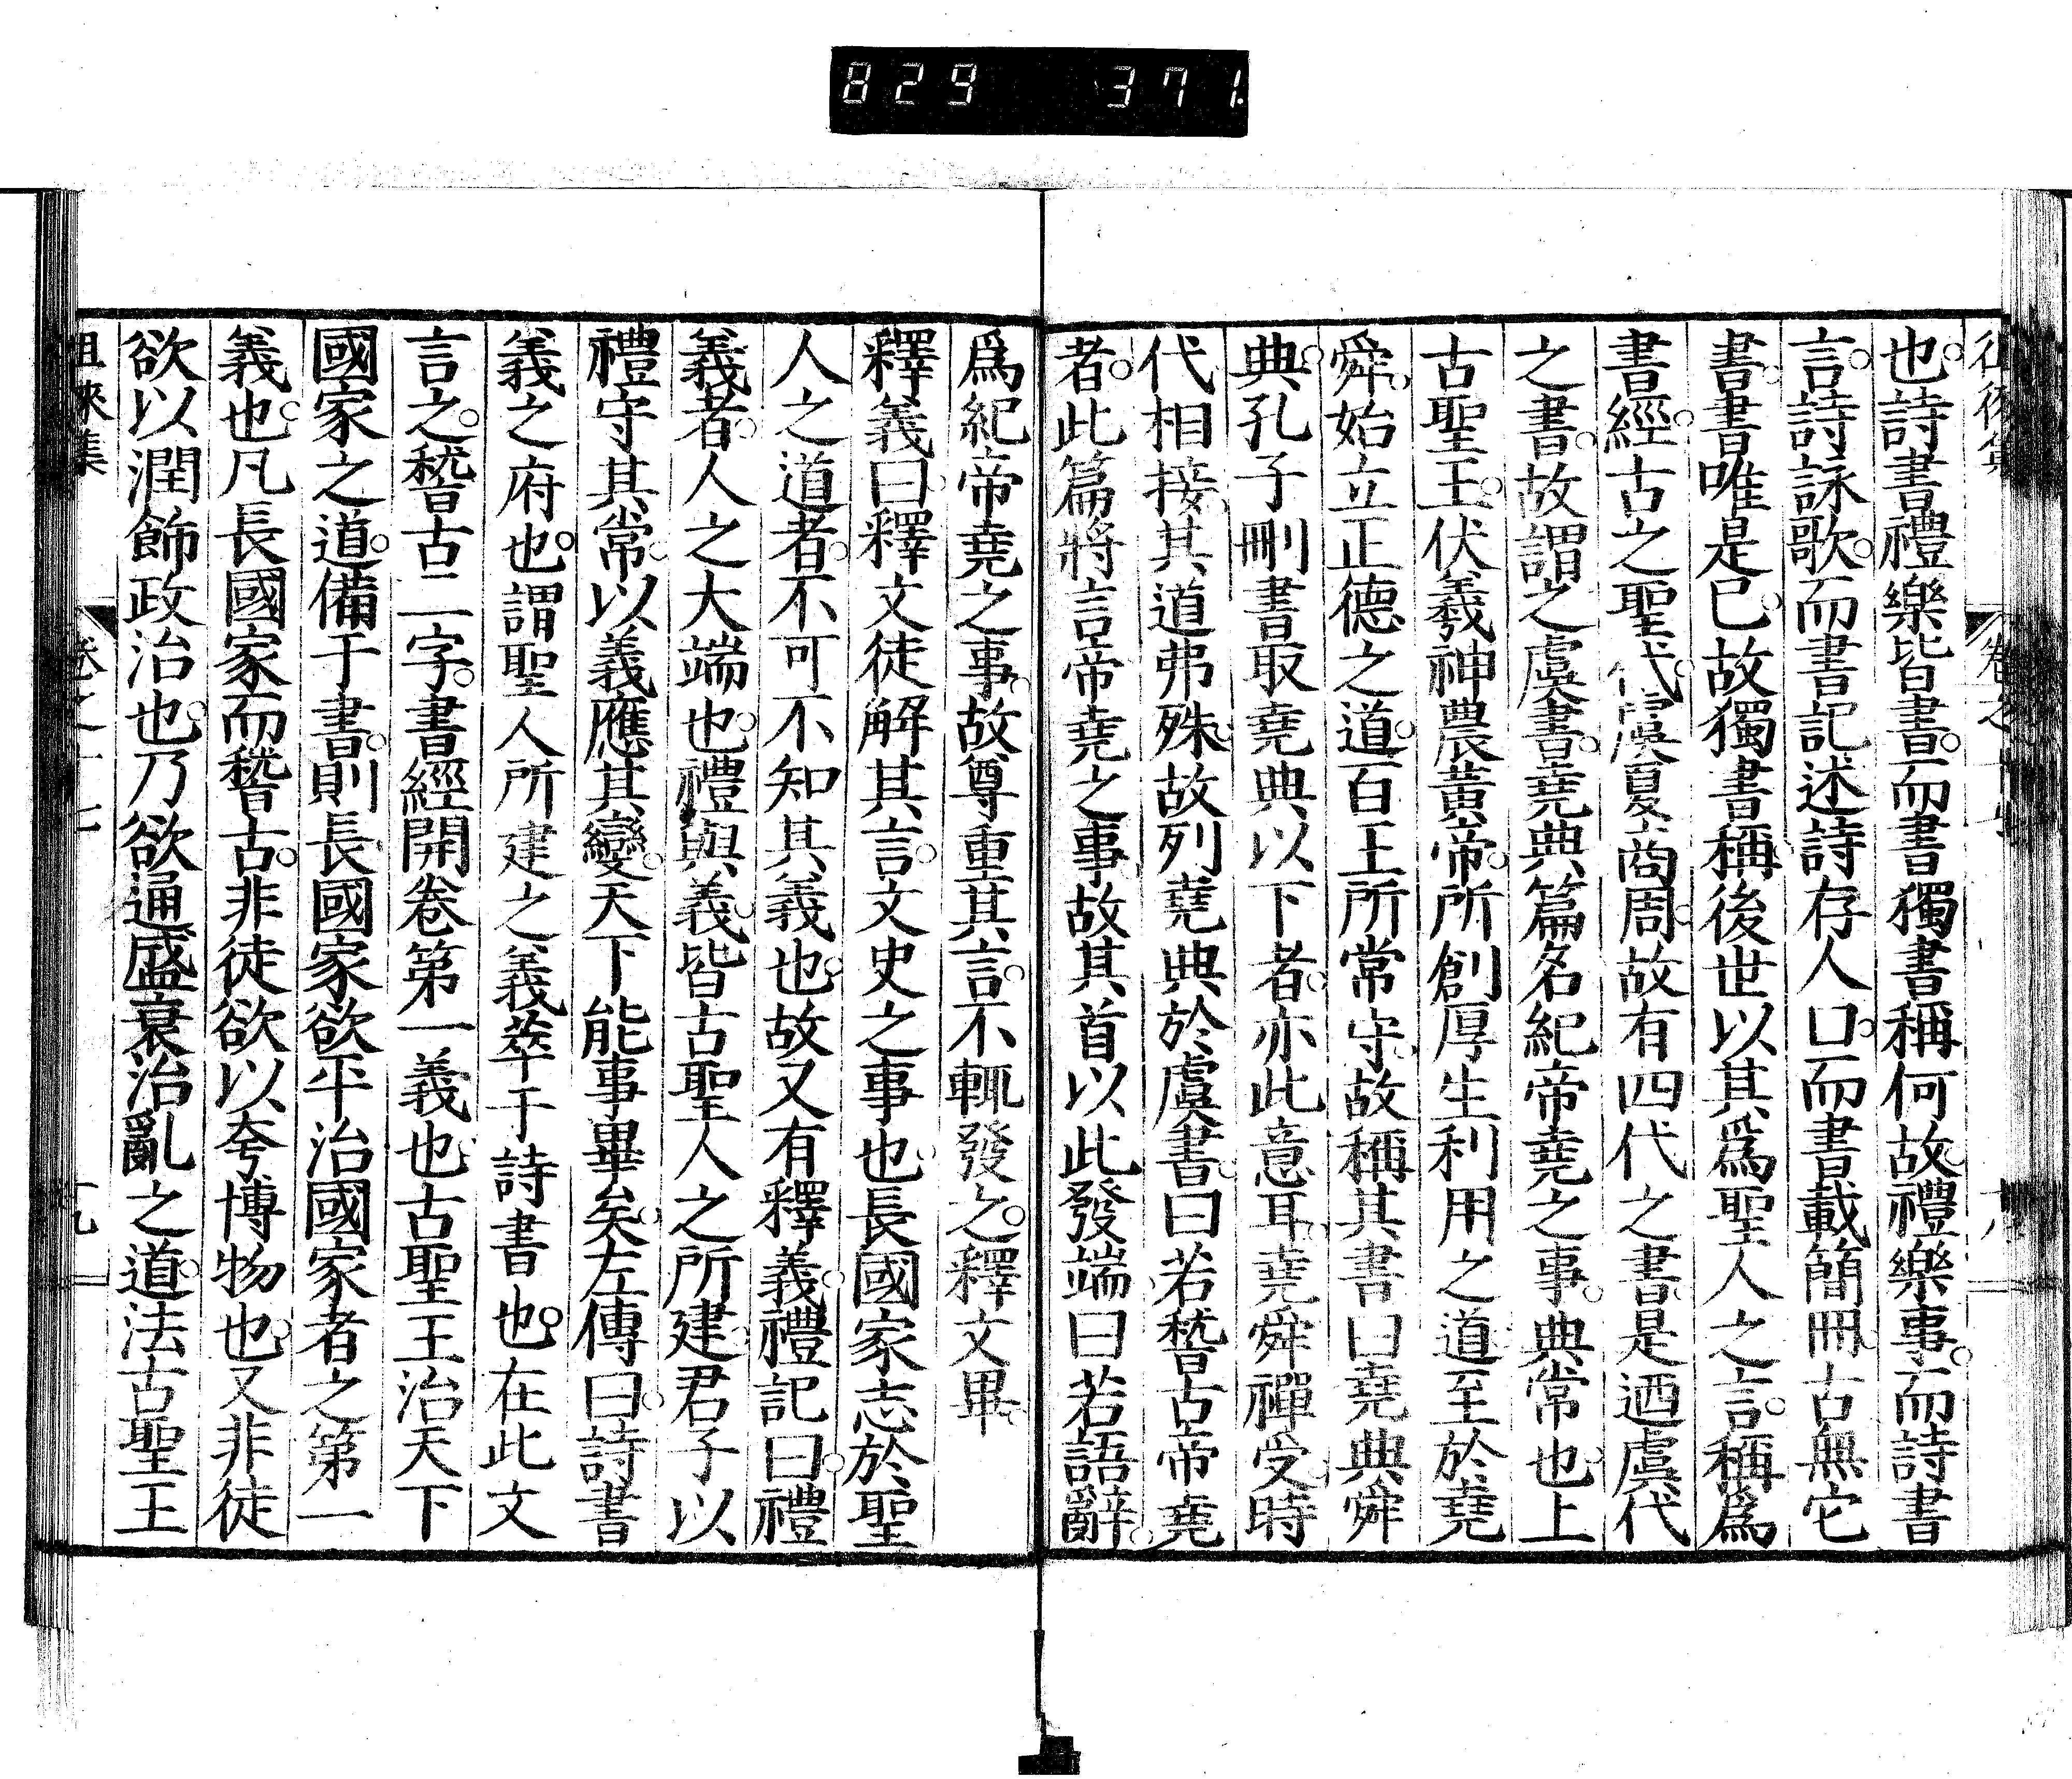 829 371
也。詩書禮樂皆書。而書獨書稱何故。禮樂事。而詩書
言。詩詠歌。而書記述詩存人口。而書載簡冊。古無它
書。書唯是已。故獨書稱。後世以其爲聖人之言。稱爲
書經。古之聖代。虞夏商周。故有四代之書。是迺虞代
之書。故謂之虞書。堯典篇名紀帝堯之事。典常也。上
古聖王。伏羲神農黃帝。所創厚生利用之道。至於堯
舜。始立正德之道。百王所常守。故稱其書曰堯典舜
典。孔子刪書取堯典以下者。亦此意耳。堯舜禪受。時
代相接。其道弗殊。故列堯典於虞書。曰若稽古帝堯
者。此篇將言帝堯之事。故其首以此發端。曰若語辭。
爲紀帝堯之事。故尊重其言。不輒發之。釋文畢。
釋義曰。釋文徒解其言。文史之事也。長國家志於聖
人之道者。不可不知其義也。故又有釋義。禮記曰。禮
義者。人之大端也。禮與義。皆古聖人之所建。君子以
禮守其常。以義應其變。天下能事畢矣。左傳曰。詩書
義之府也。謂聖人所建之義萃于詩書也。在此文
言之。稽古二字。書經開卷第一義也。古聖王治天下
國家之道。備于書。則長國家欲平治國家者之第一
義也。凡長國家而稽古。非徒欲以夸博物也。又非徒
欲以潤飾政治也。乃欲通盛衰治亂之道。法古聖王
徂徠集 卷之十七 十九